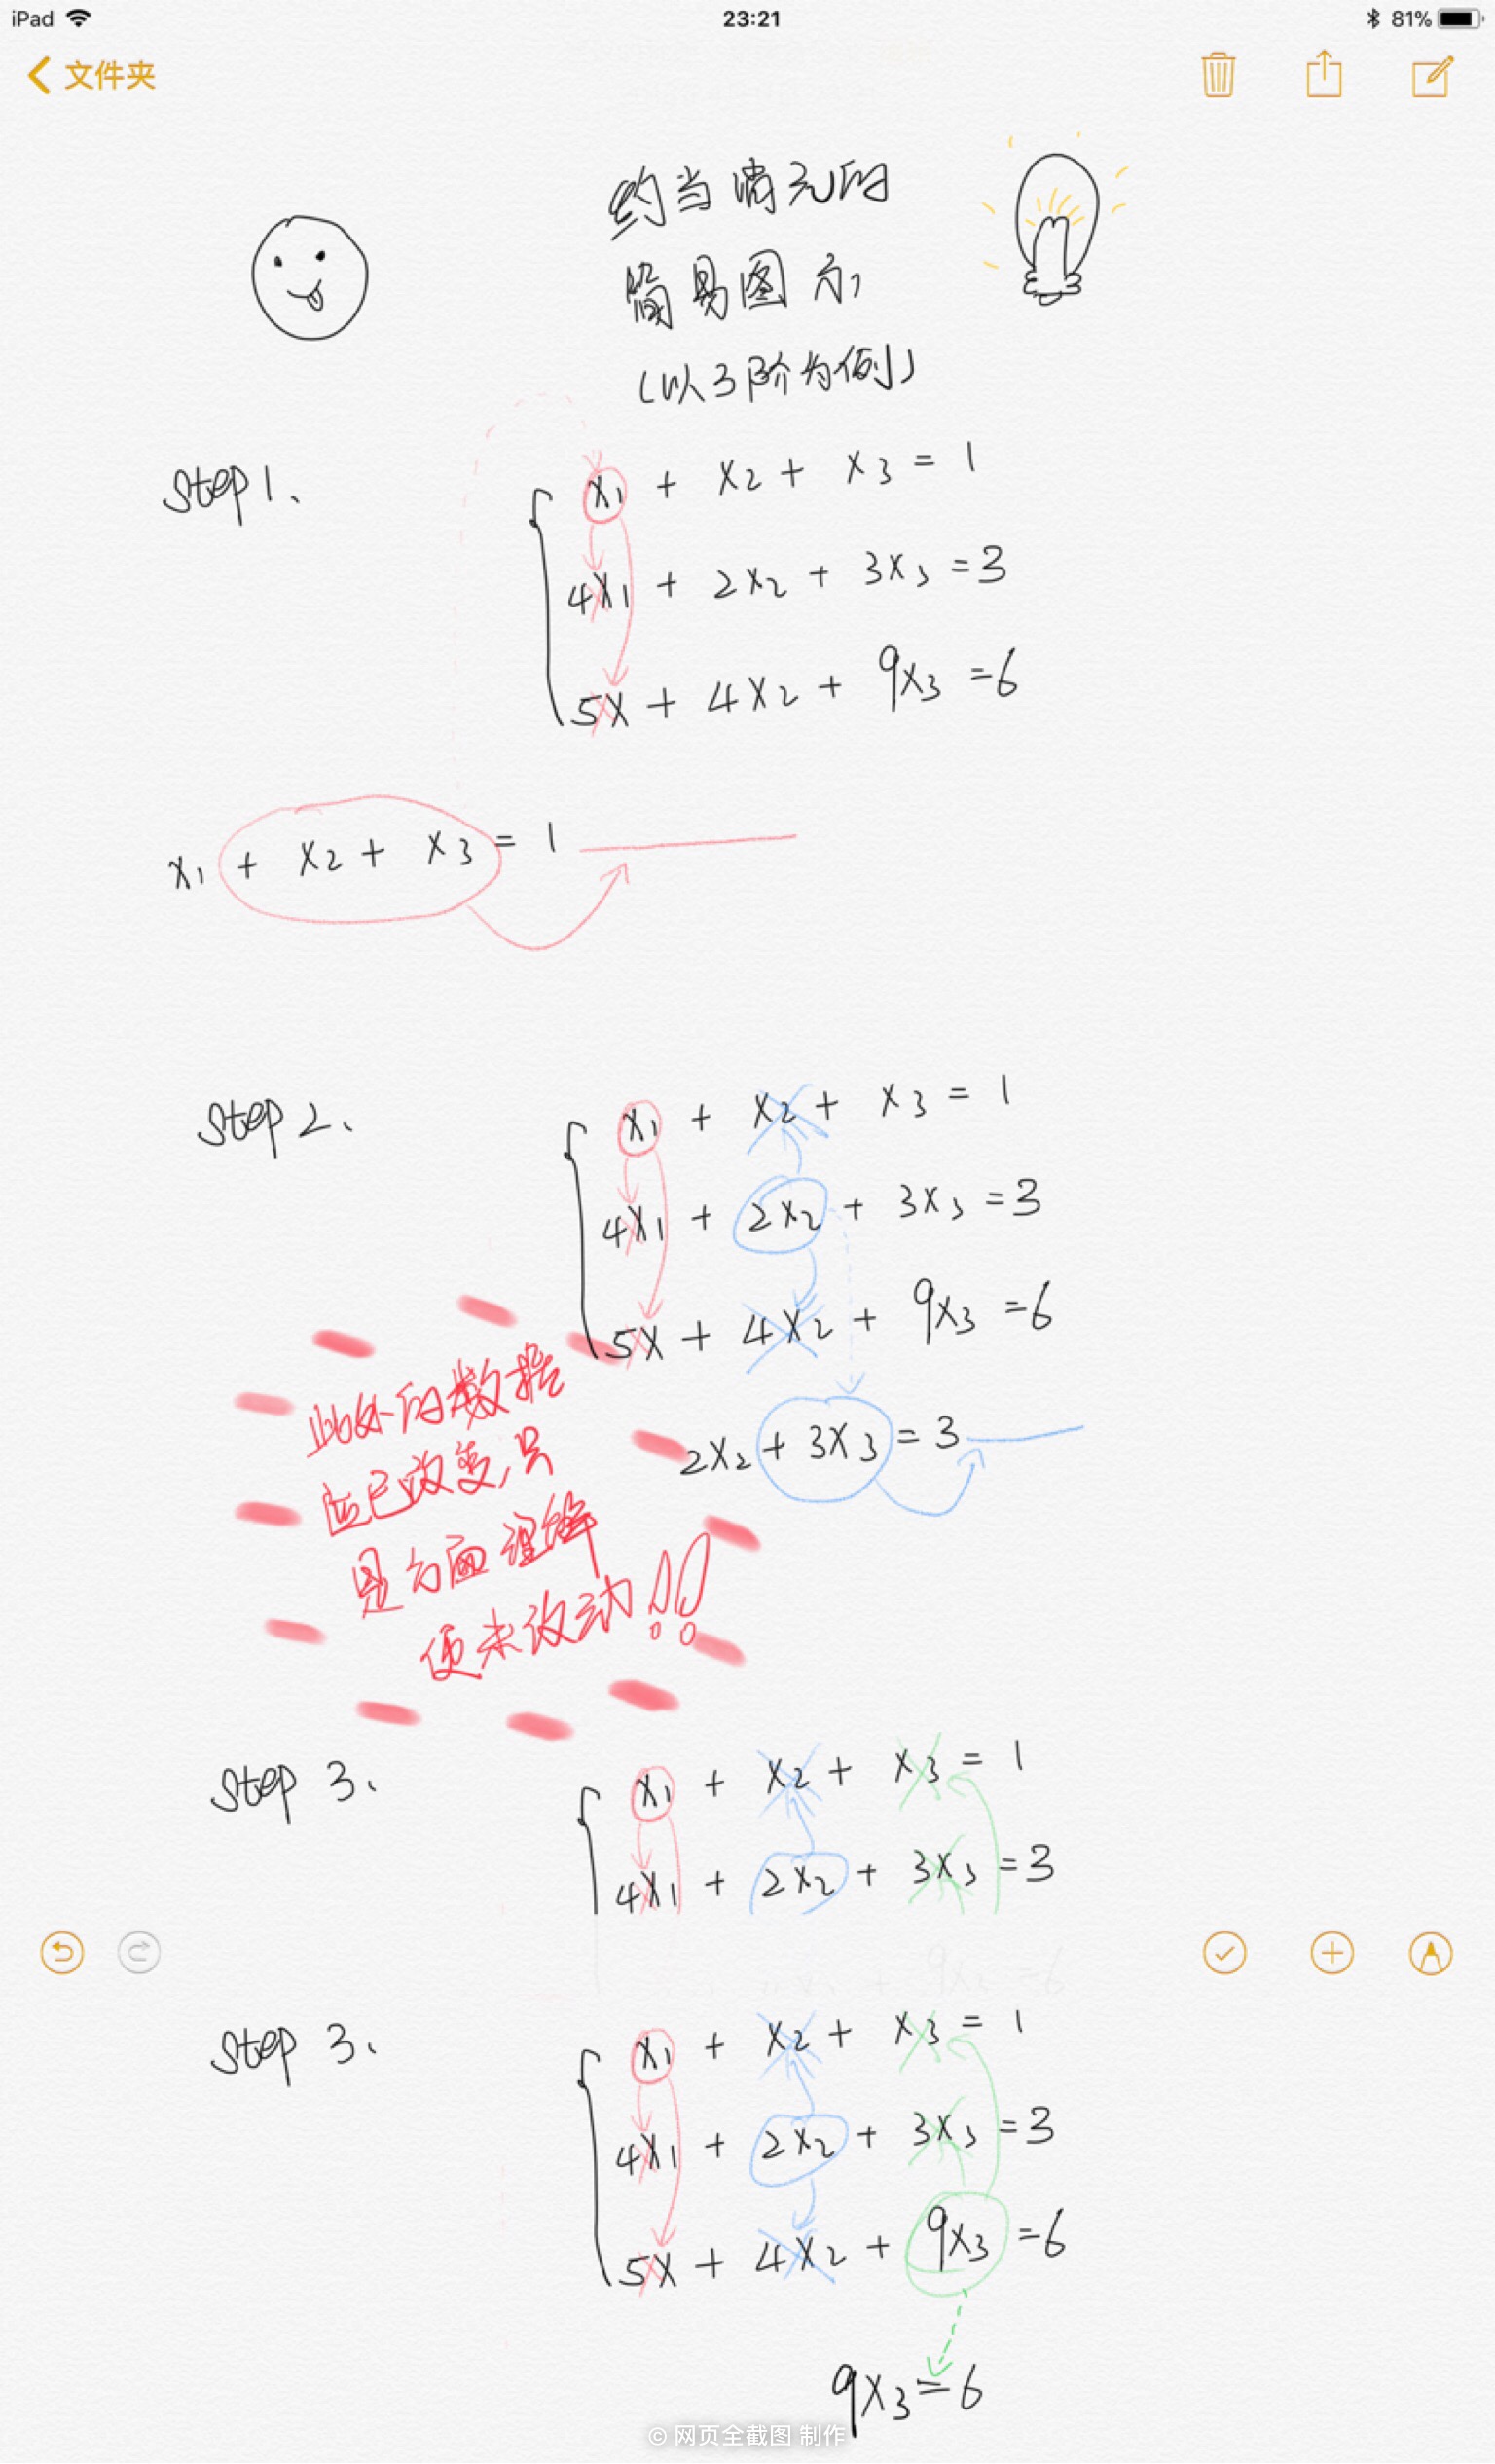 iPad 23:21 81%
文件夹
约当消元的
简易图示
(以3阶为例)
Step 1、
x₁ + x₂ + x₃ = 1
4x₁ + 2x₂ + 3x₃ = 3
5x + 4x₂ + 9x₃ = 6
x₁ + x₂ + x₃ = 1
Step 2、
x₁ + x₂ + x₃ = 1
4x₁ + 2x₂ + 3x₃ = 3
5x + 4x₂ + 9x₃ = 6
2x₂ + 3x₃ = 3
此处的数据
应已改变,只
是方面理解
便未改动!!
Step 3、
x₁ + x₂ + x₃ = 1
4x₁ + 2x₂ + 3x₃ = 3
9x₃ = 6
Step 3、
x₁ + x₂ + x₃ = 1
4x₁ + 2x₂ + 3x₃ = 3
5x + 4x₂ + 9x₃ = 6
9x₃ = 6
© 网页全截图 制作